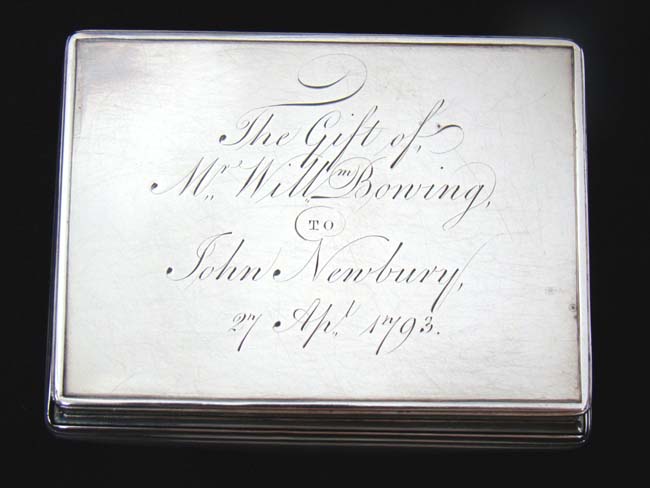 The Gift of,
Mr. Willm Bowing,
TO
John Newbury,
27 Apl. 1793.